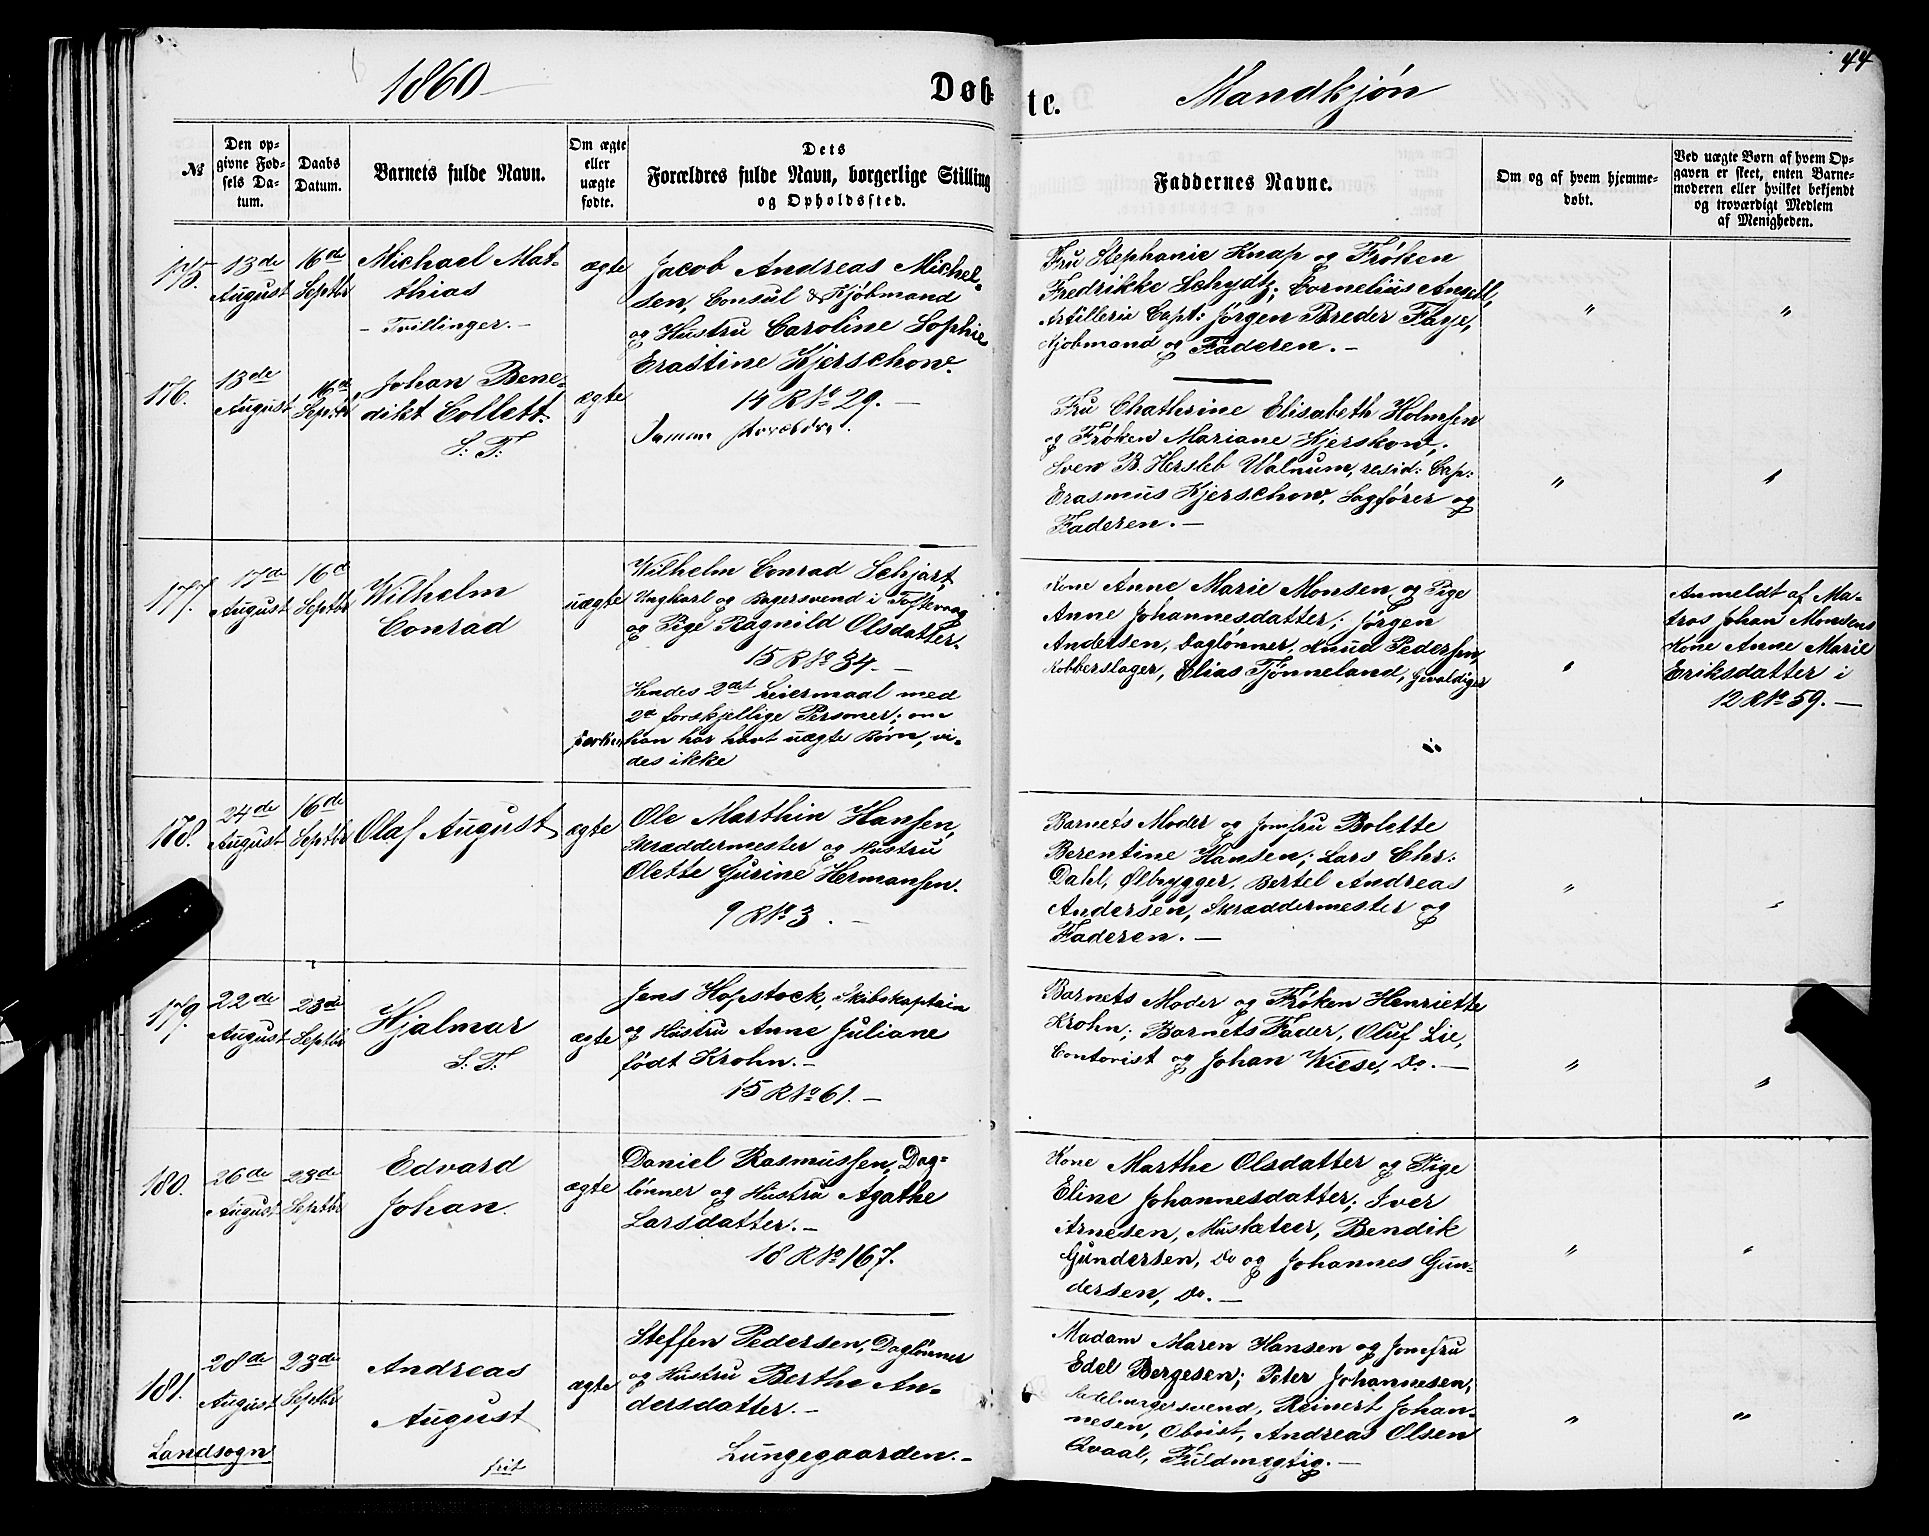 1860
Døb-
te.
Mandkjøn
44
№
Den op-
givne Fød-
sels Da-
tum.
Daabs
Datum.
Barnets fulde Navn.
Om ægte
eller
uægte
fødte.
Dets
Forældres fulde Navn, borgerlige Stilling
og Opholdssted.
Faddernes Navne.
Om og af hvem hjemme-
døbt.
Ved uægte Børn af hvem Op-
gaven er skeet, enten Barne-
moderen eller hvilket bekjendt
og troværdigt Medlem
af Menigheden.
175.
13de
August
16de
Septbr
Michael Mat-
thias
- Tvillinger. -
ægte
Jacob Andreas Michel-
sen, Consul & Kjøbmand
og Hustru Caroline Sophie
Erastine Kjerschow.
14 R No 29. —
Fru Stephanie Knap og Frøken
Fredrikke Schydtz; Cornelius
Artillerie Capt: Jørgen Breder Faye,
Kjøbmand og Faderen. —
"
"
176.
13de
August
16de
Septbr
Johan Bene-
dikt Collett.
S. T.
ægte
Samme Forældre.
Fru Chathrine Elisabeth Holmsen
og Frøken Mariane Kjerskow;
Sven B. Hersleb Walnum, resid: Cap:
Erasmus Kjerschow, Sagfører og
Faderen. —
"
"
177.
17de
August
16d
Septbr
Wilhelm
Conrad
uægte
Wilhelm Conrad Schjøtt,
Ungkarl og Bagersvend i Toftevaag
og Pige Ragnild Olsdatter.
15 R No 34. —
Hendes 2det Leiermaal med
2de forskjellige Personer; om
han har havt uægte Børn, vi-
des ikke
Kone Anne Marie Monsen og Pige
Anne Johannesdatter; Jørgen
Andersen, Daglønner, Knud Pedersen,
Kobberslager, Elias Tjønneland, Gevaldiger
"
Anmeldt af Ma-
tros Johan Monsens
Kone Anne Marie
Eriksdatter i
12 R No 59. —
178.
24de
August
16de
Septbr
Olaf August
ægte
Ole Marthin Hansen,
Skræddermester og Hustru
Olette Gurine Hermansen.
9 R No 3. —
Barnets Moder og Jomfru Bolette
Berentine Hansen; Lars Chr:
Dahl, Ølbrygger, Bertel Andreas
Andersen, Skræddermester og
Faderen. —
"
"
179.
22de
August
23de
Septbr
Hjalmar
S. T.
ægte
Jens Hopstock, Skibskaptain
og Hustru Anne Juliane
født Krohn. —
15 R No 61. —
Barnets Moder og Frøken Henriette
Krohn; Barnets Fader, Oluf Lie,
Contorist og Johan Wiese, Do. —
"
"
180.
26de
August
23de
Septbr
Edvard
Johan.
ægte
Daniel Rasmussen, Dag-
lønner og Hustru Agathe
Larsdatter. —
18 R No 167.
Kone Marthe Olsdatter og Pige
Eline Johannesdatter; Iver
Arnesen, Musketeer, Bendik
Gundersen, Do og Johannes Gun-
dersen, Do. —
"
"
181.
28de
August
23de
Septbr
Andreas
August
frit
ægte
Steffen Pedersen, Daglønner
og Hustru Berthe An-
dersdatter. —
Lungegaarden. —
Landsogn
Madam Maren Hansen og Jomfru
Edel Børgesen; Peter Johannesen,
Sadelmagersvend, Reinert Johan-
nesen, Oboist, Andreas Olsen
Qvaal, Fuldmægtig. —
"
"